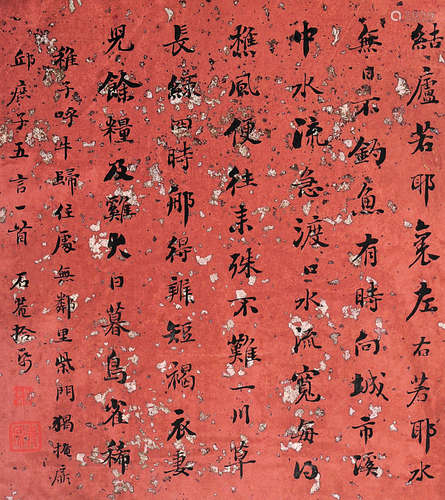 結廬若耶裏左右若耶水
無日不釣魚有時向城市溪
中水流急渡口水流寬每得
樵風便往来殊不難一川草
長綠四時那得辨短褐衣妻
兒餘糧及雞犬日暮鳥雀稀
稚子呼牛歸住處無鄰里柴門獨掩扉
邱庶子五言一首 石菴